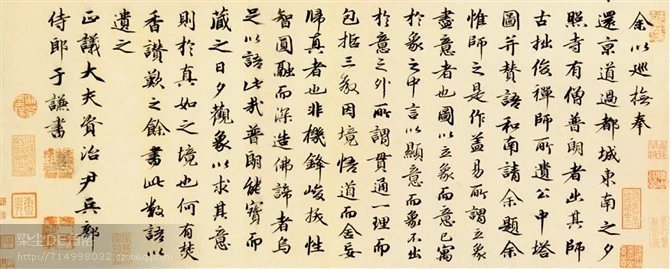 余以巡撫奉
還京道過都城東南之夕
照寺有僧普朗者出其師
古拙俊禪師所遺公中塔
圖并贊語和南請余題余
惟師之是作蓋易所謂立象
盡意者也圖以立象而意已寓
於象之中言以顯意而象不出
於意之外所謂貫通一理而
包括三教因境悟道而舍妄
歸真者也非機鋒峻拔性
智圓融而深造佛諦者烏
足以語此哉普朗能寶而
藏之日夕觀象以求其意
則於真如之境也何有焚
香讚歎之餘書此數語以
遺之
正議大夫資治尹兵部
侍郎于謙書
714998032.qzone.qq.com